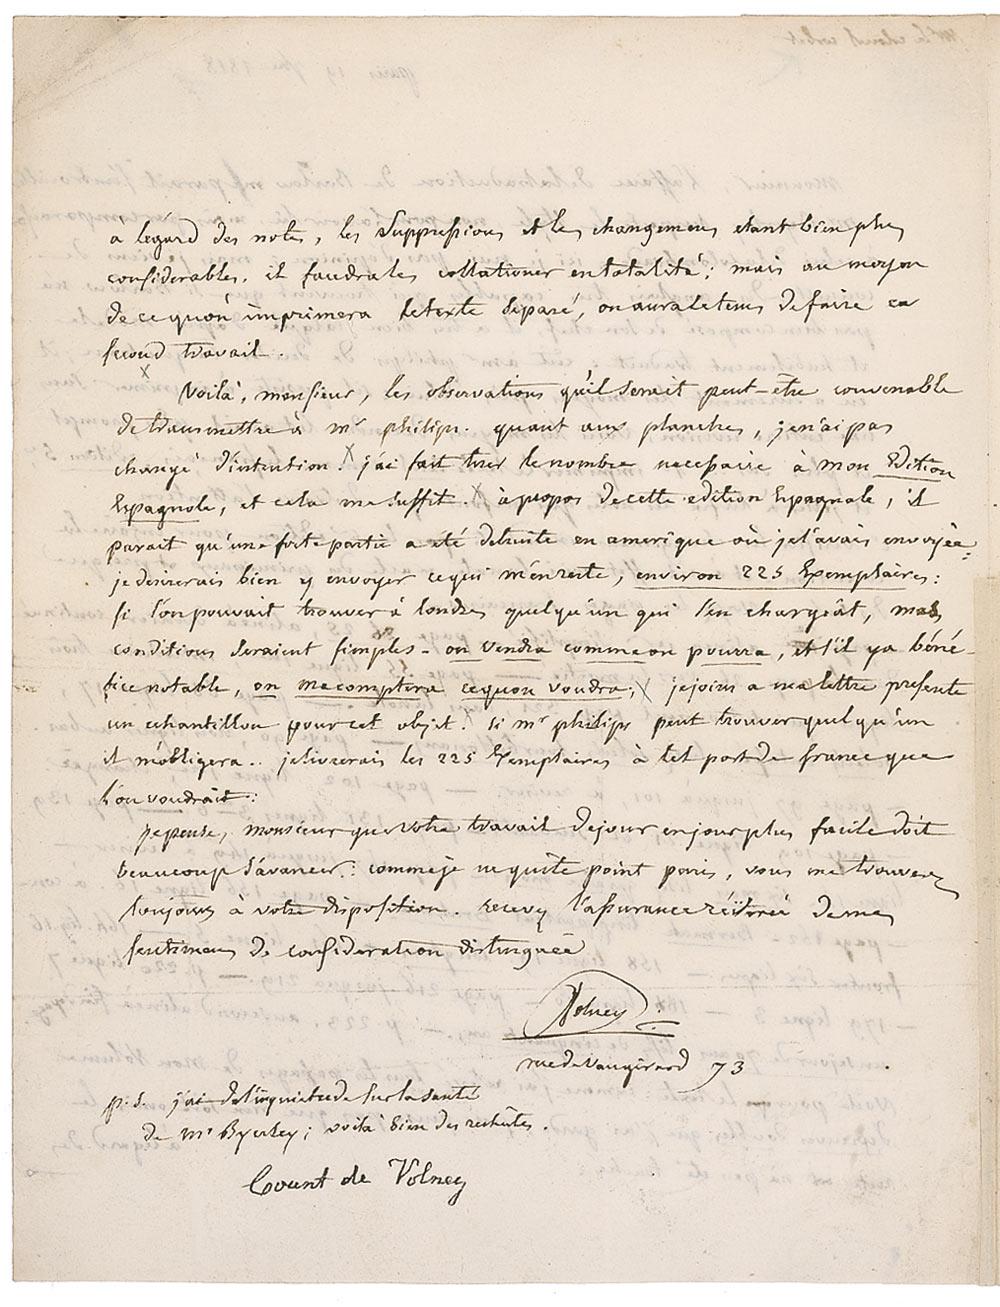 à légard des notes, les suppressions et les changemens etant bien plus
considerables, il faudra les collationer en totalité; mais au moyen
de ce qu'on imprimera le texte séparé, on aura le tems de faire ce
second travail.
Voilà, monsieur, les observations qu'il serait peut-être convenable
de transmettre à mr philips. quant aux planches, je n'ai pas
changé d'intention. j'ai fait tirer le nombre necessaire à mon Edition
Espagnole, et cela me suffit. à propos de cette edition Espagnole, il
parait qu'une forte partie a été detruite en amerique où je l'avais envoyée:
je desirerais bien y envoyer ce qui m'en reste, environ 225 Exemplaires:
si l'on pouvait trouver à londres quelqu'un qui s'en chargeât, mes
conditions seraient simples - on vendra comme on pourra, et s'il y a béné-
fice notable, on me comptera ce qu'on voudra, je joins a ma lettre presente
un echantillon pour cet objet. si mr philips peut trouver quelqu'un
il m'obligera.. je livrerais les 225 Exemplaires à tel port de france que
l'on voudrait:
je pense, monsieur que votre travail de jour en jour plus facile doit
beaucoup s'avancer: comme je ne quite point paris, vous me trouverez
toujours à votre disposition. recevez l'assurance réiterée de mes
sentimens de consideration distinguée
Volney
rue de Vaugirard 73
p.s. j'ai de l'inquietude sur la santé
de Mr Byerley; voilà bien des rechûtes.
Count de Volney